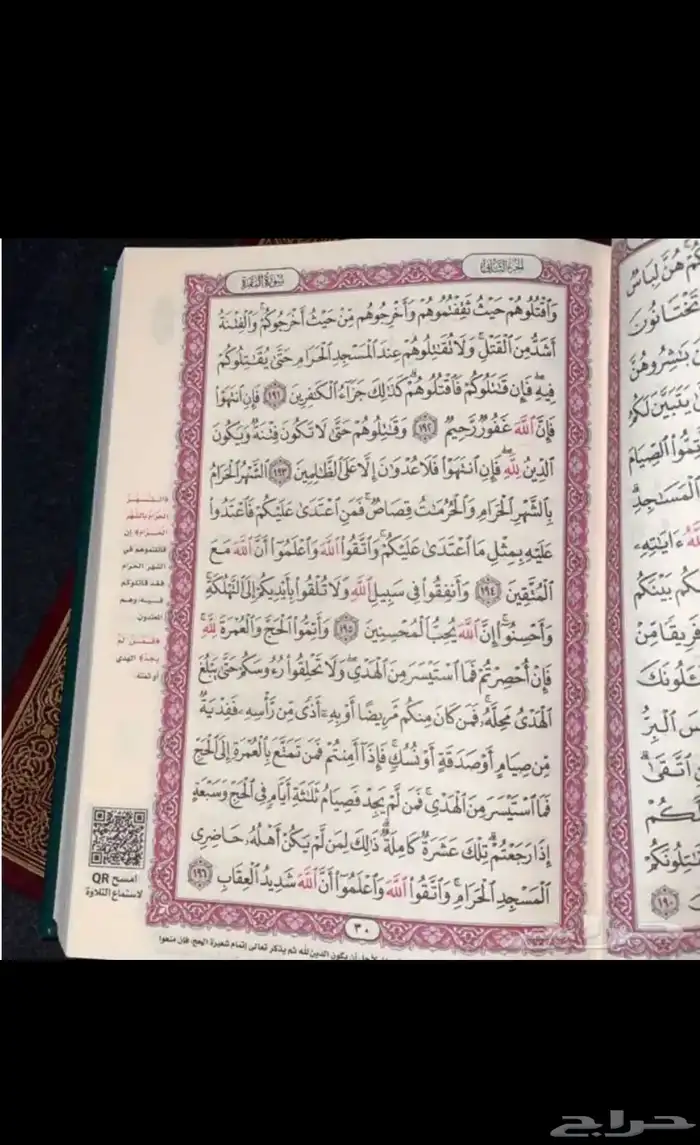 الجزء الثاني
سورة البقرة
وَاقْتُلُوهُمْ حَيْثُ ثَقِفْتُمُوهُمْ وَأَخْرِجُوهُم مِّنْ حَيْثُ أَخْرَجُوكُمْ وَالْفِتْنَةُ
أَشَدُّ مِنَ الْقَتْلِ وَلَا تُقَاتِلُوهُمْ عِندَ الْمَسْجِدِ الْحَرَامِ حَتَّىٰ يُقَاتِلُوكُمْ
فِيهِ فَإِن قَاتَلُوكُمْ فَاقْتُلُوهُمْ كَذَٰلِكَ جَزَاءُ الْكَافِرِينَ ١٩١ فَإِنِ انتَهَوْا
فَإِنَّ اللَّهَ غَفُورٌ رَّحِيمٌ ١٩٢ وَقَاتِلُوهُمْ حَتَّىٰ لَا تَكُونَ فِتْنَةٌ وَيَكُونَ
الدِّينُ لِلَّهِ فَإِنِ انتَهَوْا فَلَا عُدْوَانَ إِلَّا عَلَى الظَّالِمِينَ ١٩٣ الشَّهْرُ الْحَرَامُ
بِالشَّهْرِ الْحَرَامِ وَالْحُرُمَاتُ قِصَاصٌ فَمَنِ اعْتَدَىٰ عَلَيْكُمْ فَاعْتَدُوا
عَلَيْهِ بِمِثْلِ مَا اعْتَدَىٰ عَلَيْكُمْ وَاتَّقُوا اللَّهَ وَاعْلَمُوا أَنَّ اللَّهَ مَعَ
الْمُتَّقِينَ ١٩٤ وَأَنفِقُوا فِي سَبِيلِ اللَّهِ وَلَا تُلْقُوا بِأَيْدِيكُمْ إِلَى التَّهْلُكَةِ
وَأَحْسِنُوا إِنَّ اللَّهَ يُحِبُّ الْمُحْسِنِينَ ١٩٥ وَأَتِمُّوا الْحَجَّ وَالْعُمْرَةَ لِلَّهِ
فَإِنْ أُحْصِرْتُمْ فَمَا اسْتَيْسَرَ مِنَ الْهَدْيِ وَلَا تَحْلِقُوا رُءُوسَكُمْ حَتَّىٰ يَبْلُغَ
الْهَدْيُ مَحِلَّهُ فَمَن كَانَ مِنكُم مَّرِيضًا أَوْ بِهِ أَذًى مِّن رَّأْسِهِ فَفِدْيَةٌ
مِّن صِيَامٍ أَوْ صَدَقَةٍ أَوْ نُسُكٍ فَإِذَا أَمِنتُمْ فَمَن تَمَتَّعَ بِالْعُمْرَةِ إِلَى الْحَجِّ
فَمَا اسْتَيْسَرَ مِنَ الْهَدْيِ فَمَن لَّمْ يَجِدْ فَصِيَامُ ثَلَاثَةِ أَيَّامٍ فِي الْحَجِّ وَسَبْعَةٍ
إِذَا رَجَعْتُمْ تِلْكَ عَشَرَةٌ كَامِلَةٌ ذَٰلِكَ لِمَن لَّمْ يَكُنْ أَهْلُهُ حَاضِرِي
الْمَسْجِدِ الْحَرَامِ وَاتَّقُوا اللَّهَ وَاعْلَمُوا أَنَّ اللَّهَ شَدِيدُ الْعِقَابِ ١٩٦
٣٠
﴿الشهر
الحرام بالشهر
الحرام﴾ إن
قاتلتموهم في
الشهر الحرام
فقد قاتلوكم
فيه وهم
المعتدون
﴿فمن لم
يجد﴾ الهدي
أو ثمنه
امسح QR
لاستماع التلاوة
أن يكون الدين لله ثم يذكر تعالى إتمام شعيرة الحج، فإن منعوا
هُنَّ لِبَاسٌ
تَخْتَانُونَ
بَاشِرُوهُنَّ
يَتَبَيَّنَ لَكُمُ
أَتِمُّوا الصِّيَامَ
الْمَسَاجِدِ
ءَايَاتِهِ
بَيْنَكُم
فَرِيقًا مِّنْ
الْبِرُّ
اتَّقَىٰ
١٩٠
حراج